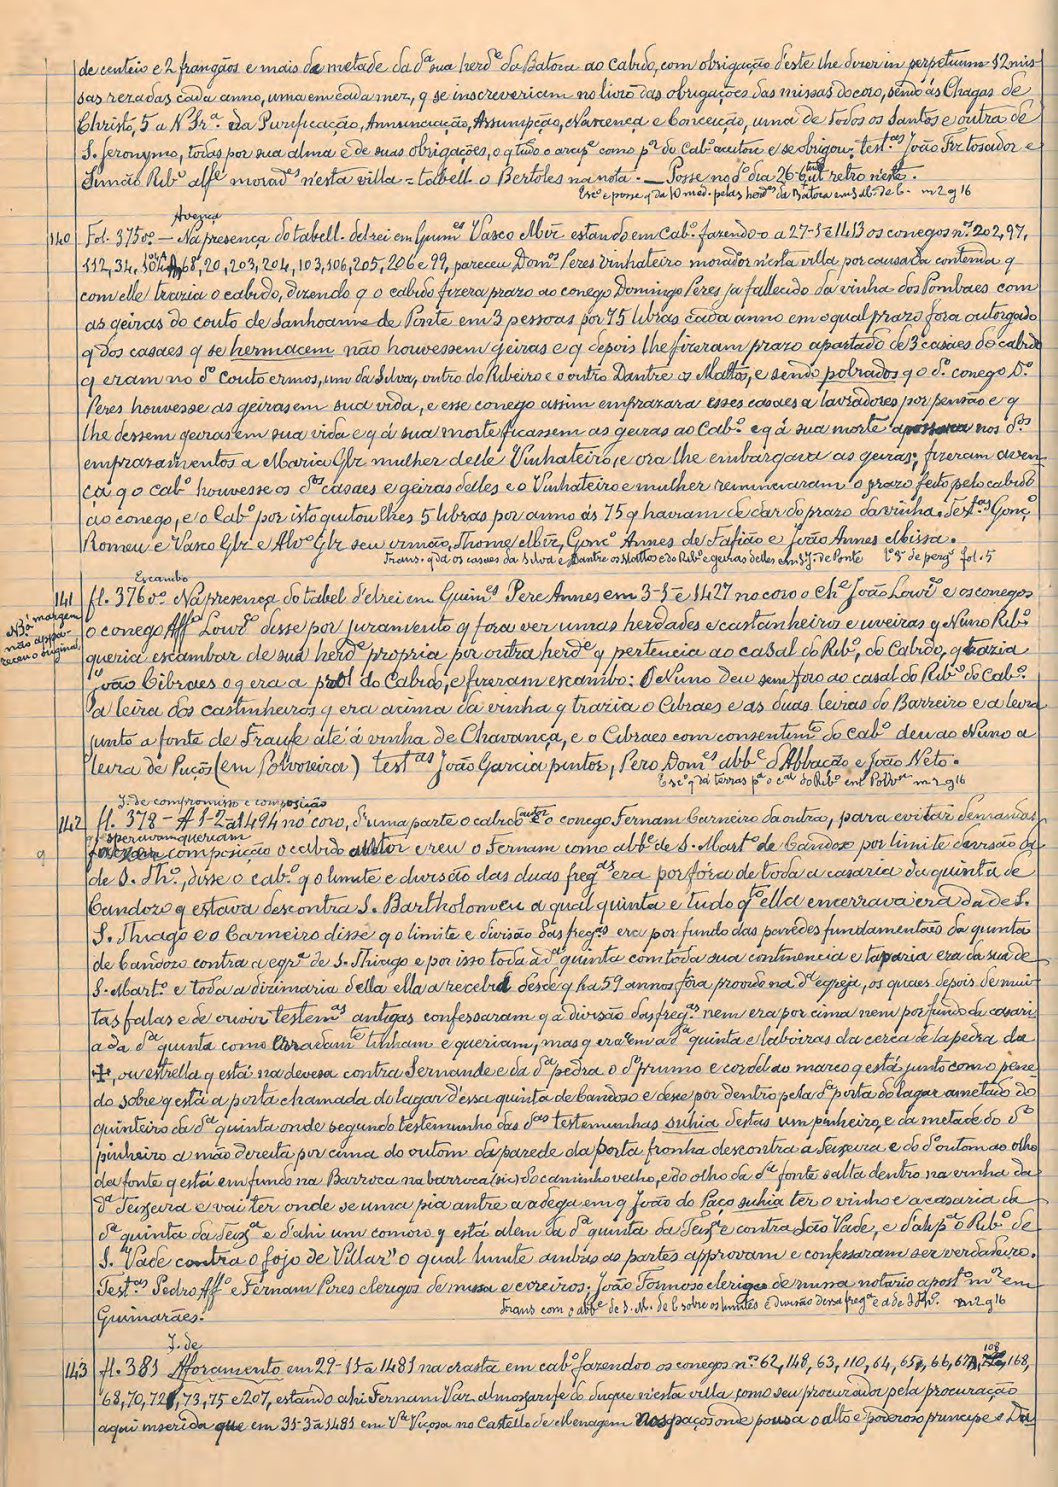 de centeio e 2 frangãos e mais da metade da dª sua herdᵉ da Batoca ao Cabido, com obrigação d'este lhe dizer in perpetuum 12 mis-
sas rezadas cada anno, uma em cada mez, q se inscreveriam no livro das obrigações das missas do coro, sendo ás Chagas de
Christo, 5 a N Srª. da Purificação, Annunciação, Assumpção, Nascença e Conceição, uma de Todos os Santos e outra de
S. Jeronymo, todas por sua alma e de suas obrigações, o q tudo o arcipᵉ como pʳ do Cabº aceitou e se obrigou: testªˢ João Frz tosador e
Simão Ribº alfᵉ moradᵉˢ n'esta villa = tabell. o Bertoles na nota. — Posse no dº dia 26
Escª e posse q da 10 med. pelas herdᵉˢ da Batoca em m 2 g 16
Avença
140 Fol. 375 vº. — Na presença do tabell. delrei em Guimᵉˢ Vasco Miz estando em Cabº. fazendo-o a 27-1-é 1413 os conegos nᵒˢ 202, 97,
112, 34, 68, 20, 203, 204, 103, 106, 205, 206 e 99, pareceu Domᵒˢ Peres vinhateiro morador n'esta villa por causa da contenda q
com elle trazia o cabido, dizendo q o cabido fizera prazo ao conego Domingo Peres ja fallecido da vinha dos Pombaes com
as geiras do couto de Sanhoanne de Ponte em 3 pessoas por 75 libras cada anno em o qual prazo fora outorgado
q dos casaes q se hermacem não houvessem geiras e q depois lhe fizeram prazo apartado de 3 casaes do cabido
q eram no dº couto ermos, um da Silva, outro do Ribeiro e o outro Dantre os Mattos, e sendo pobrados q o dº. conego Dº.
Peres houvesse as geiras em sua vida, e esse conego assim emprazara esses casaes a lavradores por pensão e q
lhe dessem geiras em sua vida e q á sua morte ficassem as geiras ao Cabº. e q á sua morte nos dᵒˢ
emprazamentos a Maria Glz mulher delle Vinhateiro, e ora lhe embargava as geiras; fizeram aven-
ça q o cabº houvesse os dᵒˢ casaes e geiras delles e o Vinhateiro e mulher renunciaram o prazo feito pelo cabido
ao conego, e o Cabº por isto quitou lhes 5 libras por anno ás 75 q haviam de dar do prazo da vinha. Testªˢ Gonçº
Romeu e Vasco Glz e Alvº Glz seu irmão, Thome Miz, Gonçº Annes de Fafião e João Annes Missa.
Trans. q dá os casaes da Silva e Dantre os Mattos e do Ribº e geiras delles em S. J. de Ponte Lº 5º de pergº fol. 5
Escambo
141 fl. 376 vº. Na presença do tabel d'elrei em Guimᵉˢ Pere Annes em 3-1-é 1427 no coro o Chᵉ João Lourº e os conegos
Nª margem
não appa-
receu o original
o conego Affº Lourº disse por juramento q fora ver umas herdades e castanheiros e uveiras q Nuno Ribº
queria escambar de sua herdᵉ propria por outra herdᵉ q pertencia ao casal do Ribº, do Cabido, q trazia
João Cibraes o q era a prol do Cabido, e fizeram escambo: O Nuno deu sem foro ao casal do Ribº do Cabº.
a leira dos castinheiros q era acima da vinha q trazia o Cibraes e as duas leiras do Barreiro e a leira
junto a fonte de Fraufe até á vinha de Chavança, e o Cibraes com consentimᵗᵒ do cabº deu ao Nuno a
leira de Puços (em Polvoreira) testªˢ João Garcia pintor, Pero Domᵉˢ abbᵉ d'Abbação e João Neto.
Escª q dá terras pª o cªl do Ribº em Polvʳª m 2 g 16
I. de compromisso e composição
142 fl. 378 — A 1-2-a 1494 no coro, d'uma parte o cabido autor e o conego Fernam Carneiro da outra, para evitar demandas
q esperavam queriam
composição o cabido autor e reu o Fernam como abbᵉ de S. Martº de Candoso por limite divisão da
de S. Thº., disse o cabº. q o limite e divisão das duas fregªˢ era por fóra de toda a casaria da quinta de
Candozo q estava descontra S. Bartholomeu a qual quinta e tudo qᵗº ella encerrava era da de S.
S. Thiago e o Carneiro disse q o limite e divisão das fregᵃˢ era por fundo das paredes fundamentaes da quinta
de Candozo contra a egrª de S. Thiago e por isso toda a dª quinta com toda sua continencia e taparia era da sua de
S. Martº. e toda a dizimaria della ella a recebe desde q ha 59 annos fôra provido na dª egreja, os quaes depois de mui-
tas falas e de ouvir testemªˢ antigas confessaram q a divisão das fregªˢ nem era por cima nem por fundo da casari
a da dª quinta como erradamᵗᵉ tinham e queriam, mas q era em a dª quinta e laboiras da cerca de la pedra da
✠, ou estrella q está na devesa contra Sernande e da dª pedra o dº prumo e cordel ao marco q está junto com o pene-
do sobre q está a porta chamada do lagar d'essa quinta de Candoso e desse por dentro pela dª porta do lagar a metade do
quinteiro da dª quinta onde segundo testemunho das dªˢ testemunhas suhia destas um pinheiro, e da metade do dº
pinheiro a mão dereita por cima do outom da parede da porta fronha descontra a Teixeira e do dº outom ao olho
da fonte q está em fundo na Barroca na barroca (sic) do caminho velho, e do olho da dª fonte salta dentro na vinha da
dª Teixeira e vai ter onde se uma pia antre a adega em q João do Paço suhia ter o vinho e a casaria da
dª quinta da Teixª e d'ahi um comoro q está alem da dª quinta da Teixª e contra São Vade, e d'ali pª o Ribº de
S. Vade contra o fojo de Villar" o qual limite ambas as partes approvam e confessaram ser verdadeiro.
Testªˢ Pedro Affº e Fernam Pires clerigos de missa e coreiros; João Formoso clerigo de missa notario apostº mºʳ em
Guimarães. Trans com o abbᵉ de S. M. de C sobre os limites e divisão dessa fregª e a de S. Thº. m 2 g 16
I. de
143 fl. 381 Afforamento em 29-11-a 1481 na crasta em cabº fazendo o os conegos nᵒˢ 62, 148, 63, 110, 64, 65, 66, 67, 108, 168,
68, 70, 72, 73, 75 e 207, estando ahi Fernam Vaz almoxarife do duque n'esta villa como seu procurador pela procuração
aqui inserida que em 31-3-a 1481 em Vª Viçosa no Castello de Menagem nos paços onde pousa o alto e poderoso principe o Du-